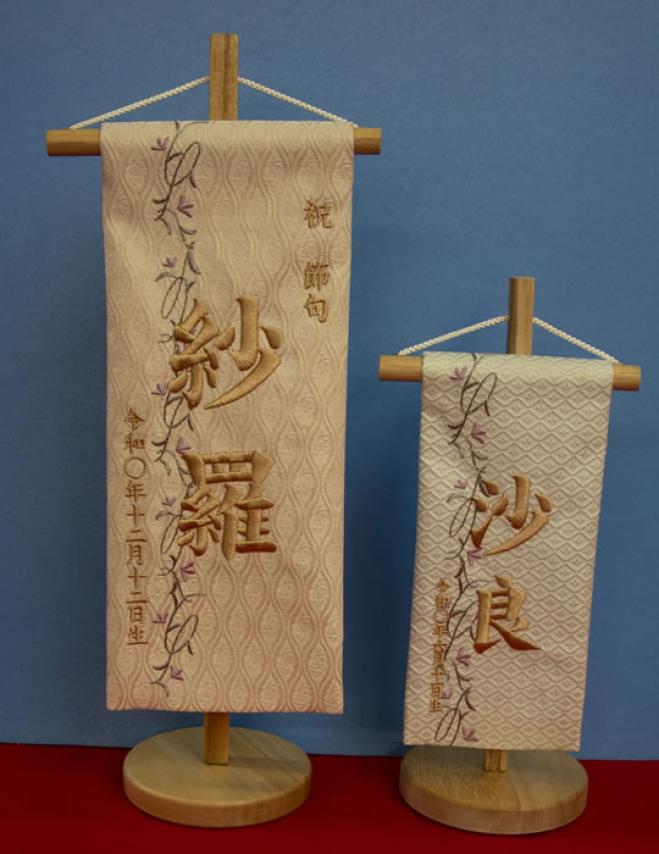 祝 節句
紗羅
令和〇年十二月十二日生
沙良
令和〇年六月十日生